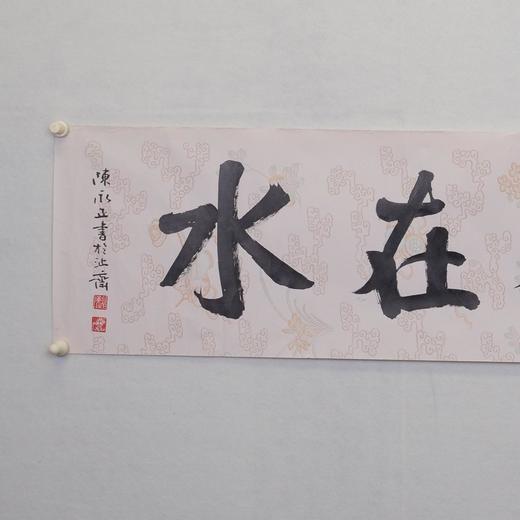 在水
陳永正書於沚齋